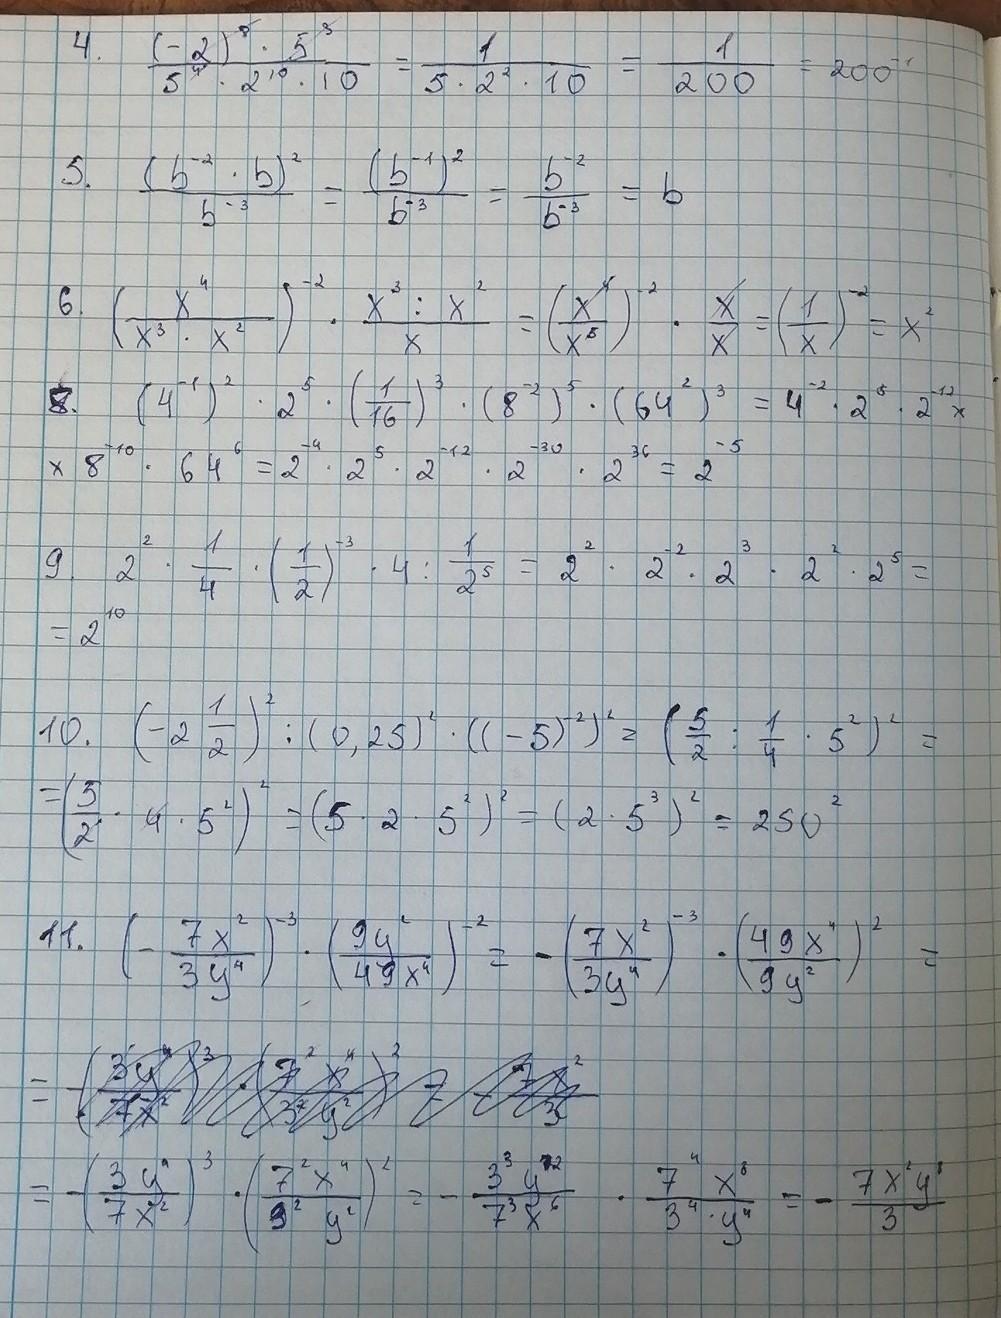 4. \frac{(-2)^8 \cdot 5^3}{5^4 \cdot 2^{10} \cdot 10} = \frac{1}{5 \cdot 2^2 \cdot 10} = \frac{1}{200} = 200^{-1}
5. \frac{(b^{-2} \cdot b)^2}{b^{-3}} = \frac{(b^{-1})^2}{b^{-3}} = \frac{b^{-2}}{b^{-3}} = b
6. (\frac{x^4}{x^3 \cdot x^2})^{-2} \cdot \frac{x^3 : x^2}{x} = (\frac{x^4}{x^5})^{-2} \cdot \frac{x}{x} = (\frac{1}{x})^{-2} = x^2
8. (4^{-1})^2 \cdot 2^5 \cdot (\frac{1}{16})^3 \cdot (8^{-2})^5 \cdot (64^2)^3 = 4^{-2} \cdot 2^5 \cdot 2^{-12} ×
× 8^{-10} \cdot 64^6 = 2^{-4} \cdot 2^5 \cdot 2^{-12} \cdot 2^{-30} \cdot 2^{36} = 2^{-5}
9. 2^2 \cdot \frac{1}{4} \cdot (\frac{1}{2})^{-3} \cdot 4 : \frac{1}{2^5} = 2^2 \cdot 2^{-2} \cdot 2^3 \cdot 2^2 \cdot 2^5 =
= 2^{10}
10. (-2\frac{1}{2})^2 : (0,25)^2 \cdot ((-5)^{-2})^2 = (\frac{5}{2} : \frac{1}{4} \cdot 5^2)^2 =
= (\frac{5}{2} \cdot 4 \cdot 5^2)^2 = (5 \cdot 2 \cdot 5^2)^2 = (2 \cdot 5^3)^2 = 250^2
11. (-\frac{7x^2}{3y^4})^{-3} \cdot (\frac{9y^2}{49x^4})^{-2} = -(\frac{7x^2}{3y^4})^{-3} \cdot (\frac{49x^4}{9y^2})^2 =
= -(\frac{3y^4}{7x^2})^3 \cdot (\frac{7^2x^4}{9^2 y^2})^2 = -\frac{3^3y^{12}}{7^3x^6} \cdot \frac{7^4x^8}{3^4 \cdot y^4} = -\frac{7x^2y^8}{3}